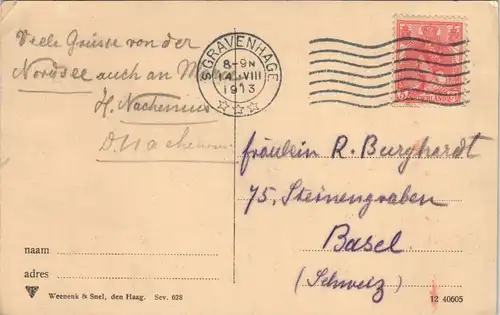 Viele Grüsse von der
Nordsee auch an
H. Nachenius
D. Nachenius
'S GRAVENHAGE
8-9N
14.VIII
1913
Fräulein R. Burghardt
75, Steinengraben
Basel.
(Schweiz)
naam
adres
Weenenk & Snel, den Haag. Sev. 628
12 40605